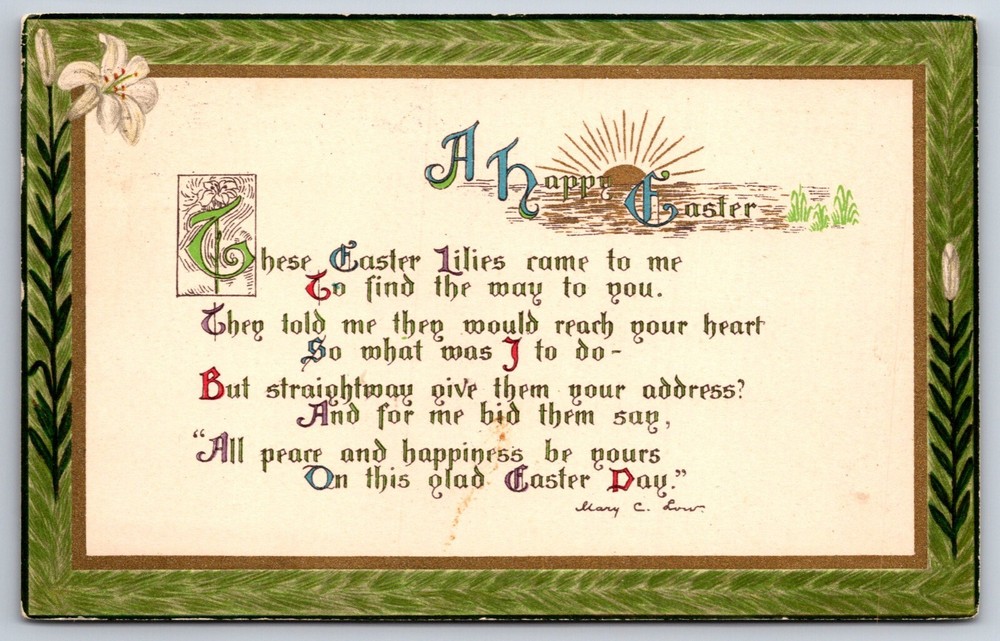 A Happy Easter
These Easter Lilies came to me
To find the way to you.
They told me they would reach your heart
So what was I to do-
But straightway give them your address?
And for me bid them say,
"All peace and happiness be yours
On this glad Easter Day."
Mary C. Low.